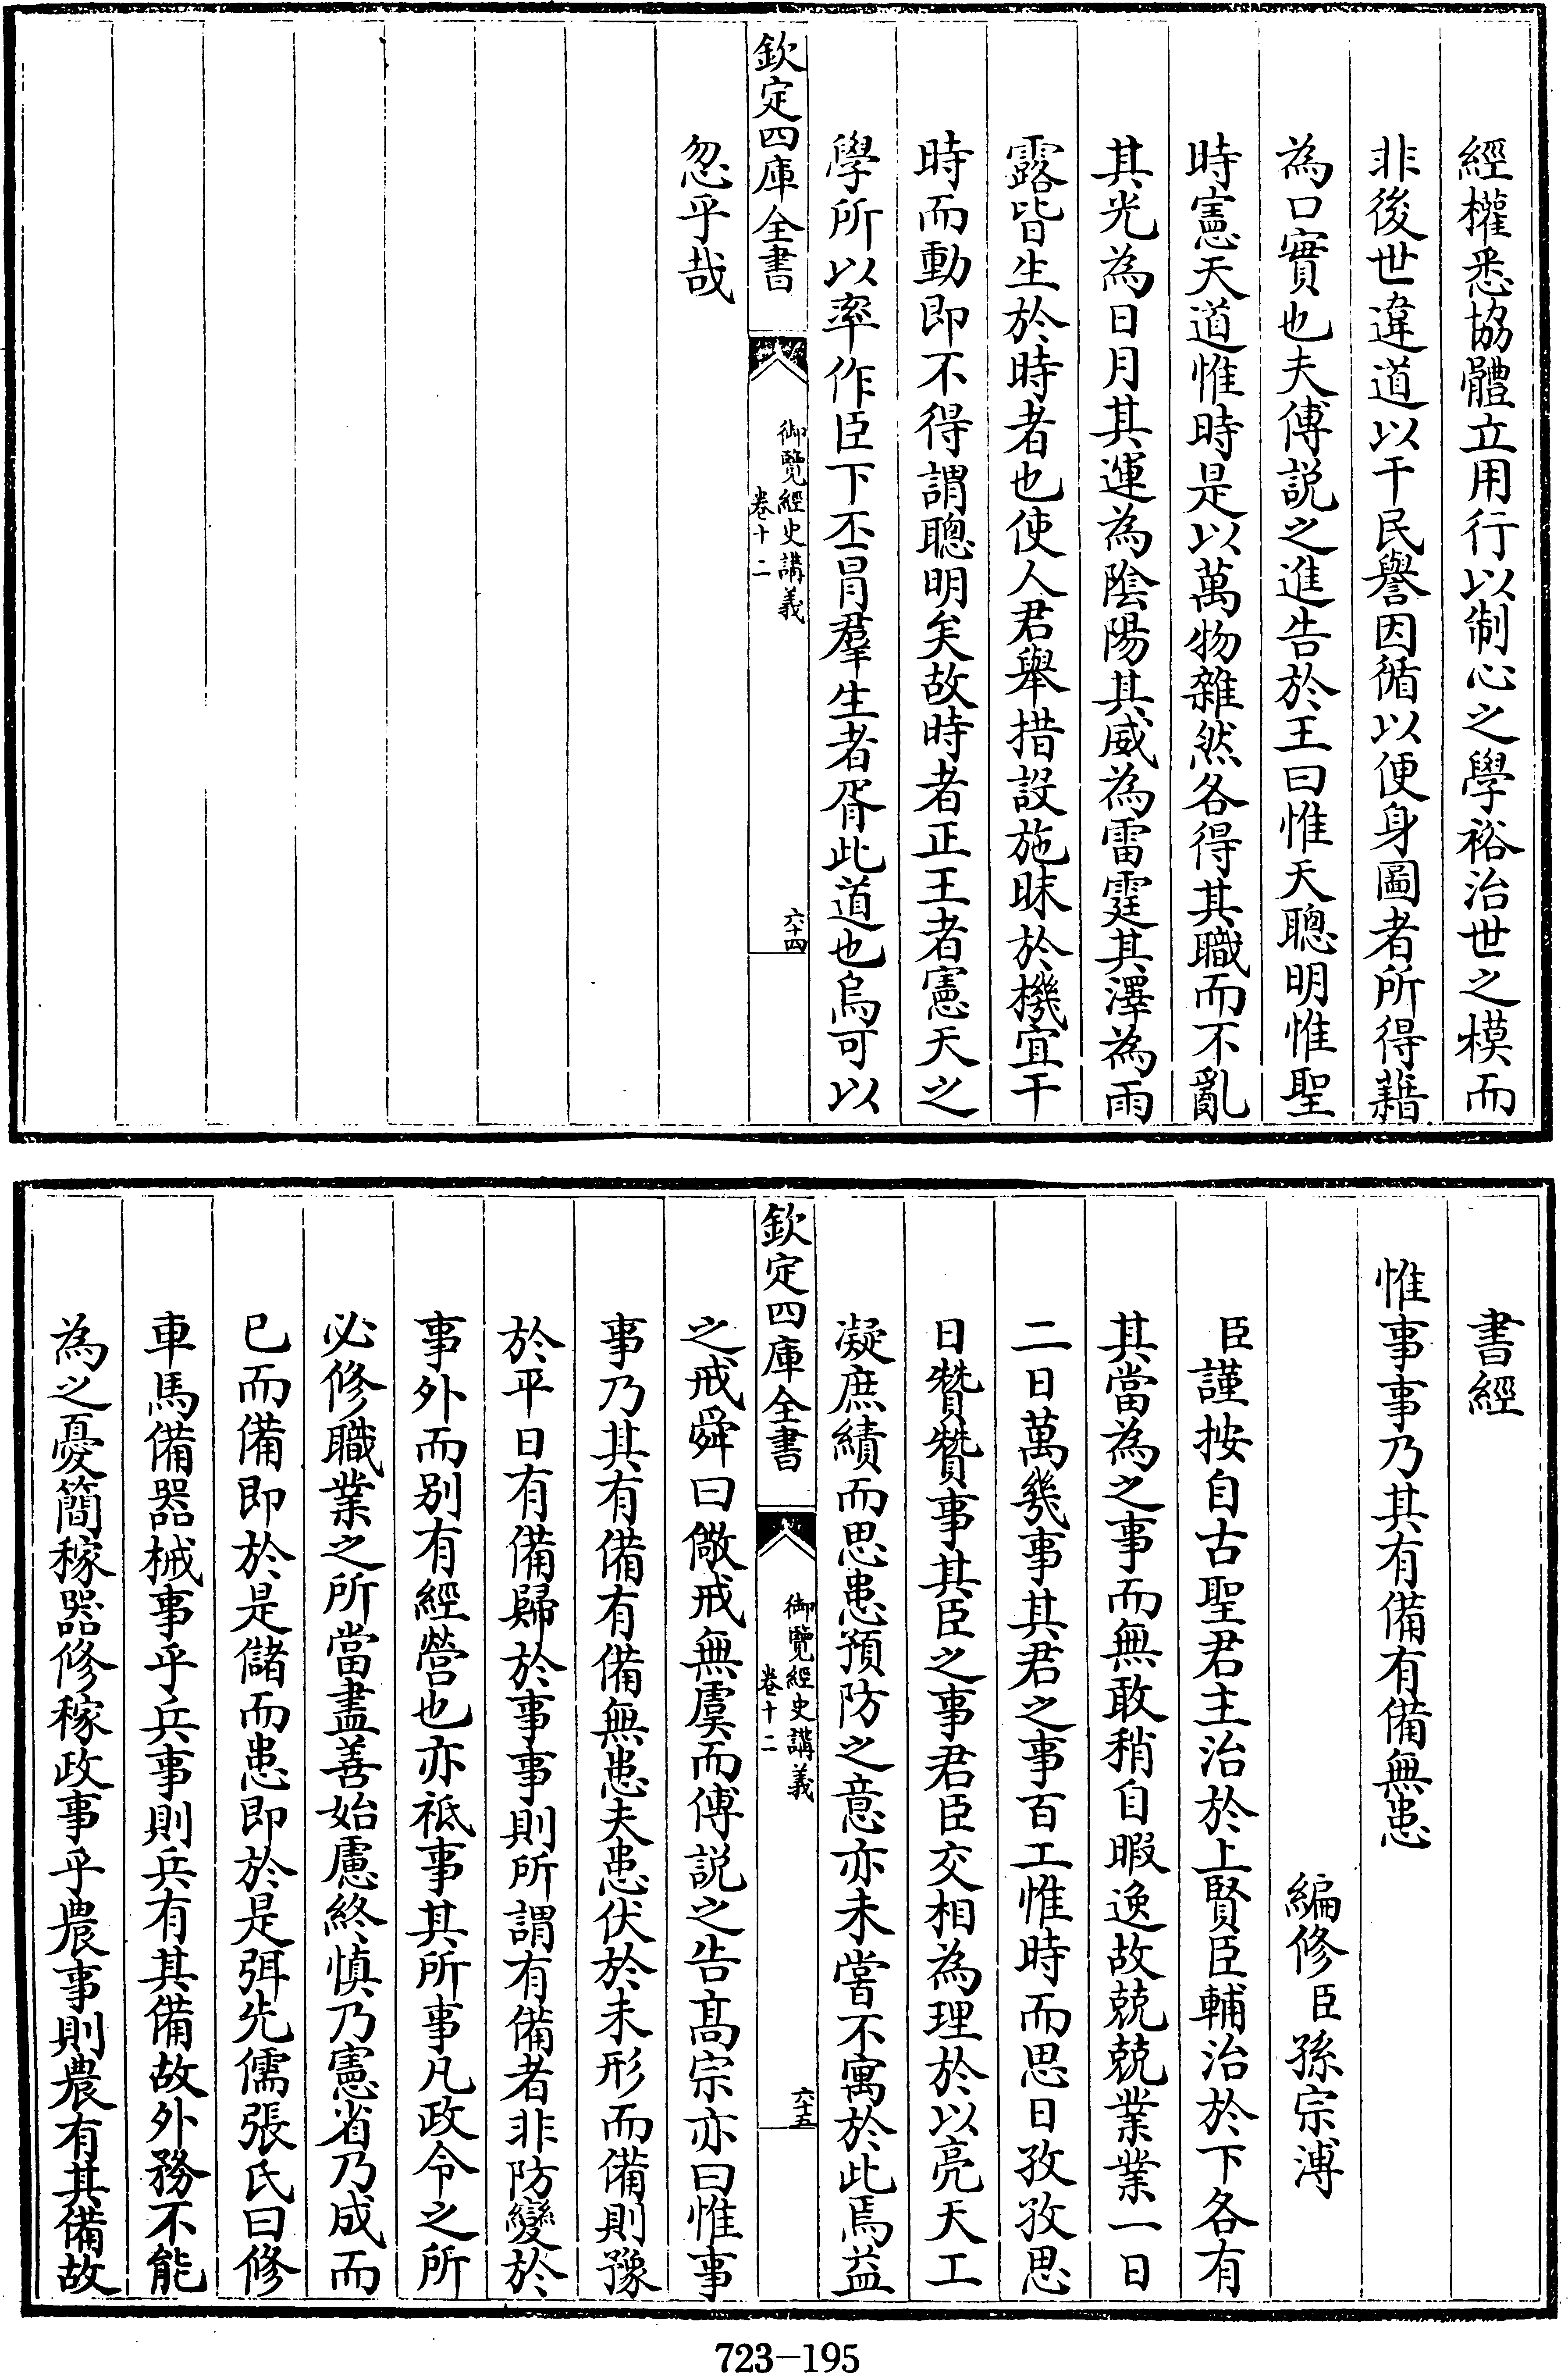 經權悉協體立用行以制心之學裕治世之模而
非後世違道以干民譽因循以便身圖者所得藉
為口實也夫傅説之進告於王曰惟天聰明惟聖
時憲天道惟時是以萬物雜然各得其職而不亂
其光為日月其運為陰陽其威為雷霆其澤為雨
露皆生於時者也使人君舉措設施昧於機宜干
時而動即不得謂聰明矣故時者正王者憲天之
學所以率作臣下丕冒羣生者胥此道也烏可以
欽定四庫全書
御覽經史講義
卷十二
六十四
忽乎哉
書經
惟事事乃其有備有備無患
編修臣孫宗溥
臣謹按自古聖君主治於上賢臣輔治於下各有
其當為之事而無敢稍自暇逸故兢兢業業一日
二日萬幾事其君之事百工惟時而思日孜孜思
日贊贊事其臣之事君臣交相為理於以亮天工
凝庶績而思患預防之意亦未嘗不寓於此焉益
欽定四庫全書
御覽經史講義
卷十二
六十五
之戒舜曰儆戒無虞而傅説之告髙宗亦曰惟事
事乃其有備有備無患夫患伏於未形而備則豫
於平日有備歸於事事則所謂有備者非防變於
事外而别有經營也亦祗事其所事凡政令之所
必修職業之所當盡善始慮終慎乃憲省乃成而
已而備即於是儲而患即於是弭先儒張氏曰修
車馬備器械事乎兵事則兵有其備故外務不能
為之憂簡稼器修稼政事乎農事則農有其備故
723-195